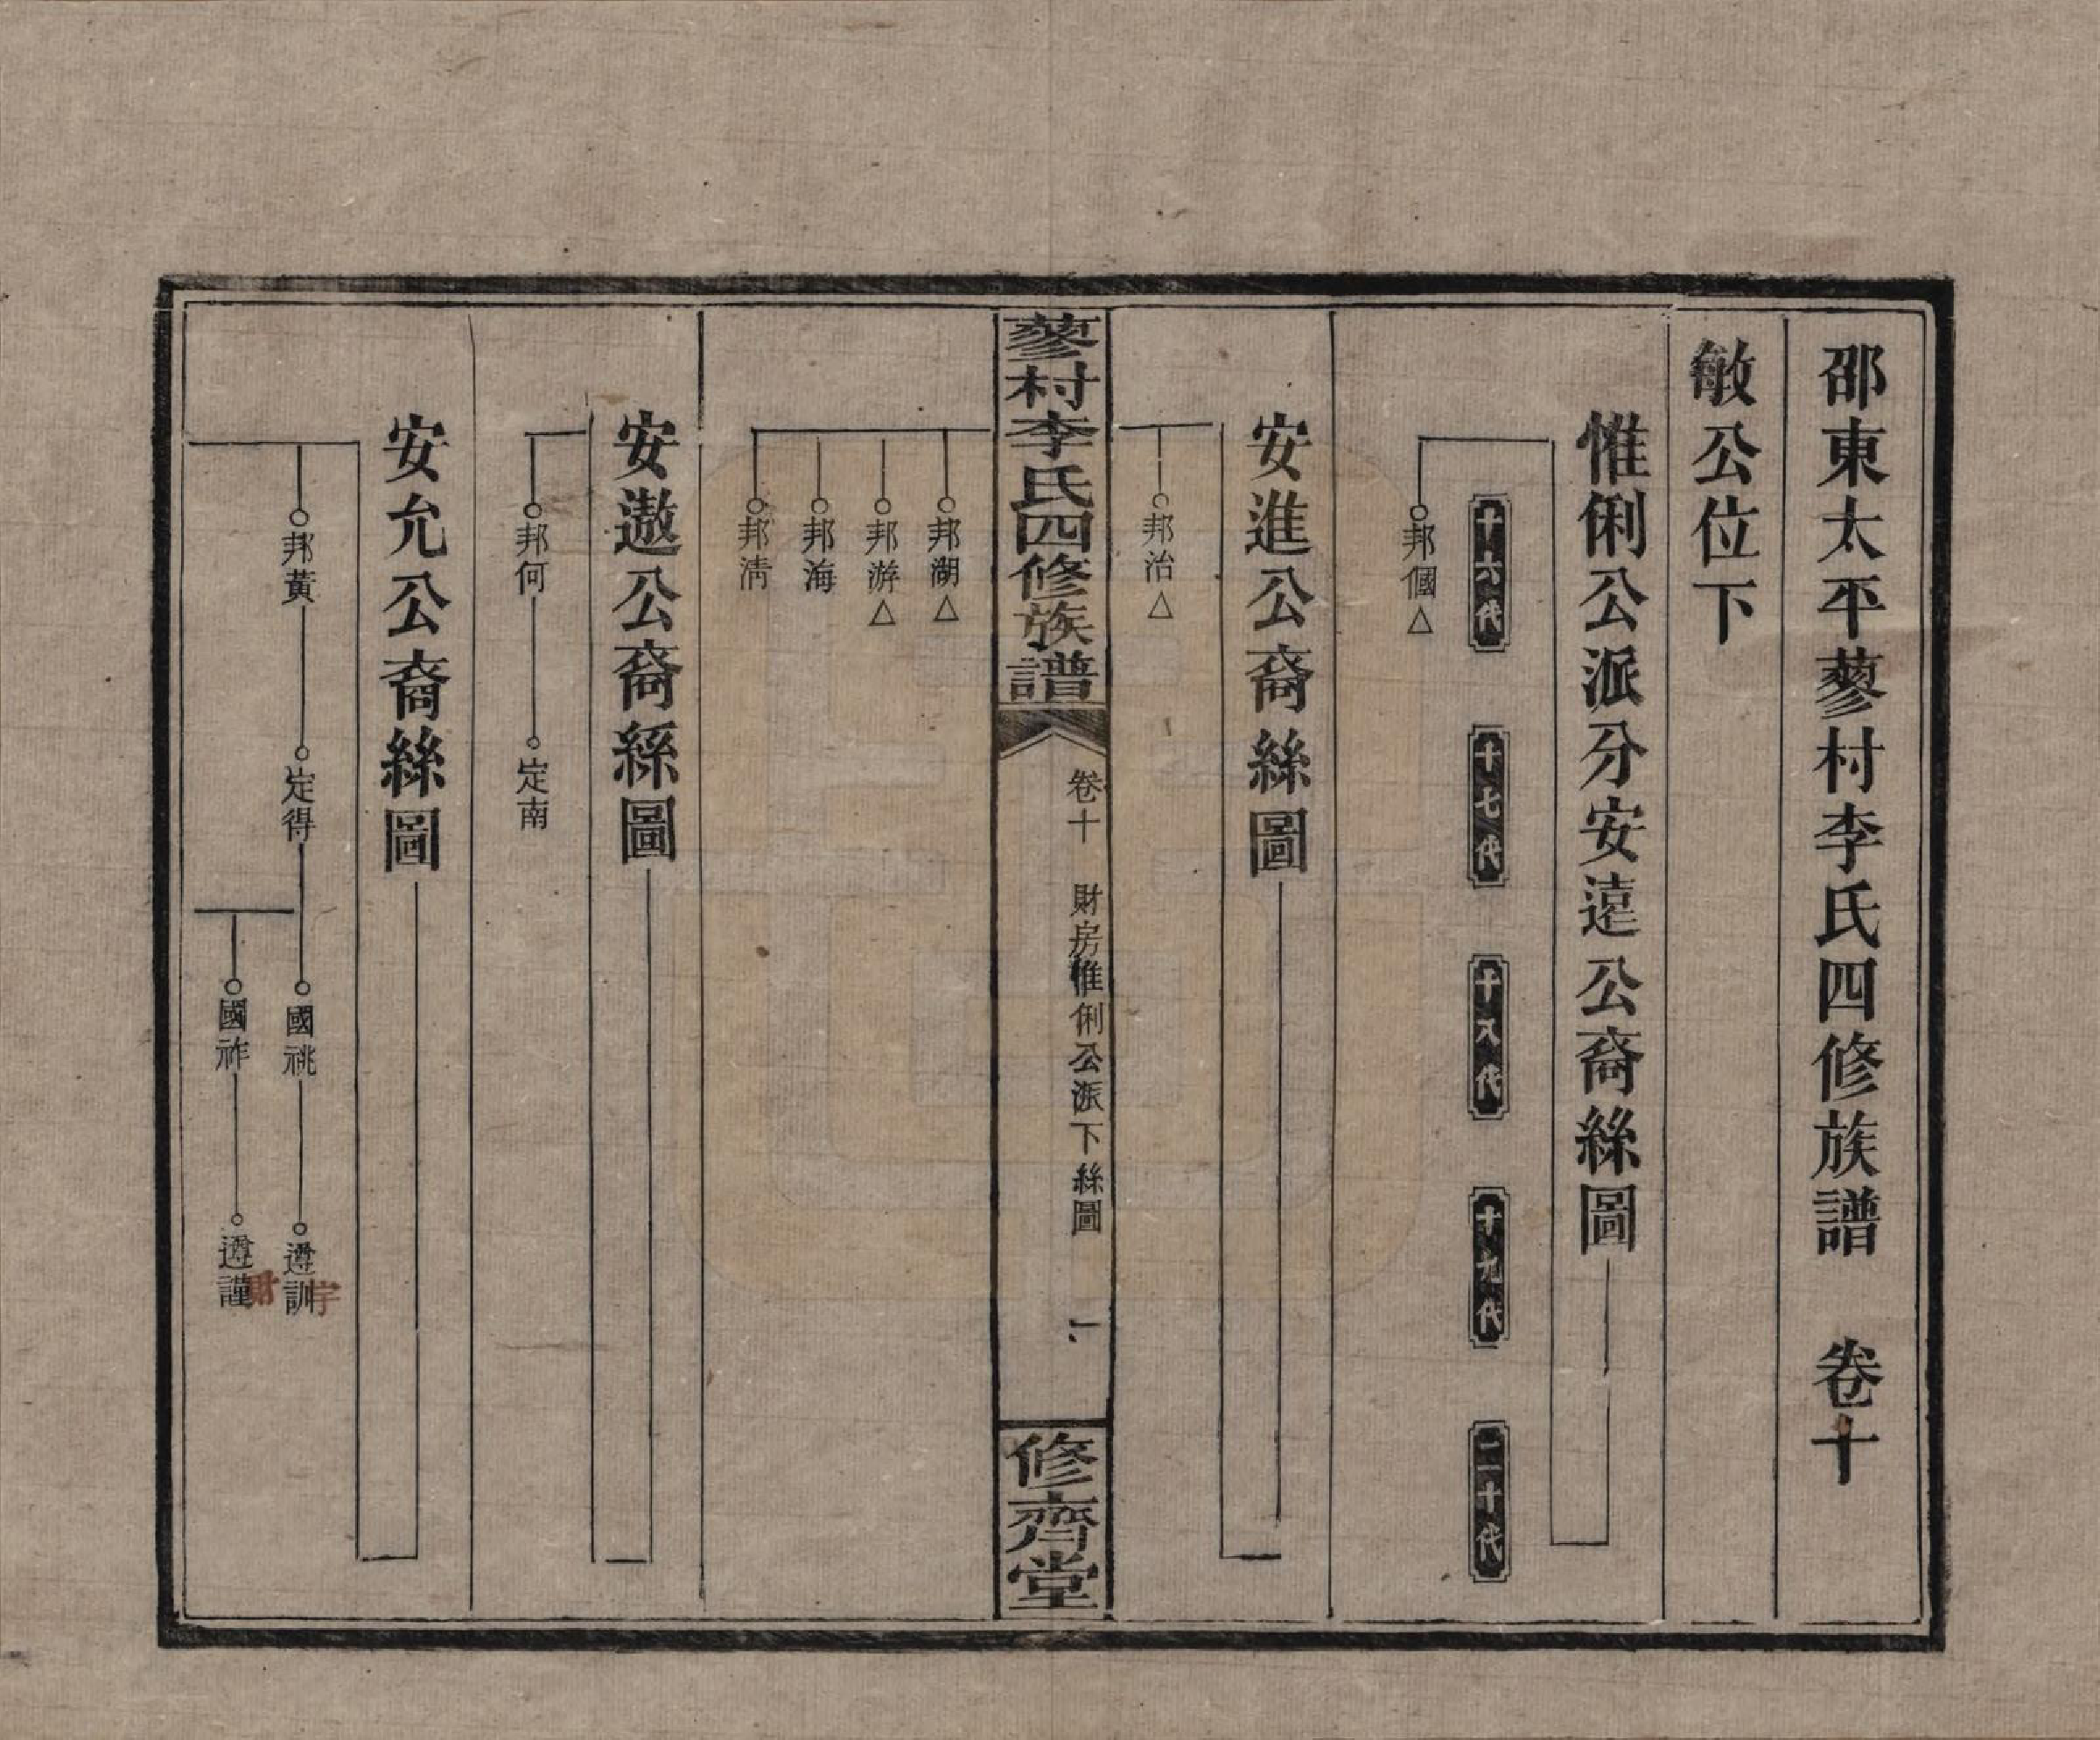 邵東太平蓼村李氏四修族譜 卷十
敏公位下
惟俐公派分安遠公裔絲圖
十六代
十七代
十八代
十九代
二十代
邦個△
安進公裔絲圖
邦治△
蓼村李氏四修族譜
卷十 財房惟俐公派下絲圖 一
修齊堂
邦湖△
邦游△
邦海
邦清
安遨公裔絲圖
邦何
定南
安允公裔絲圖
邦黃
定得
國祧
遵訓
宇
國祚
遵謹
財